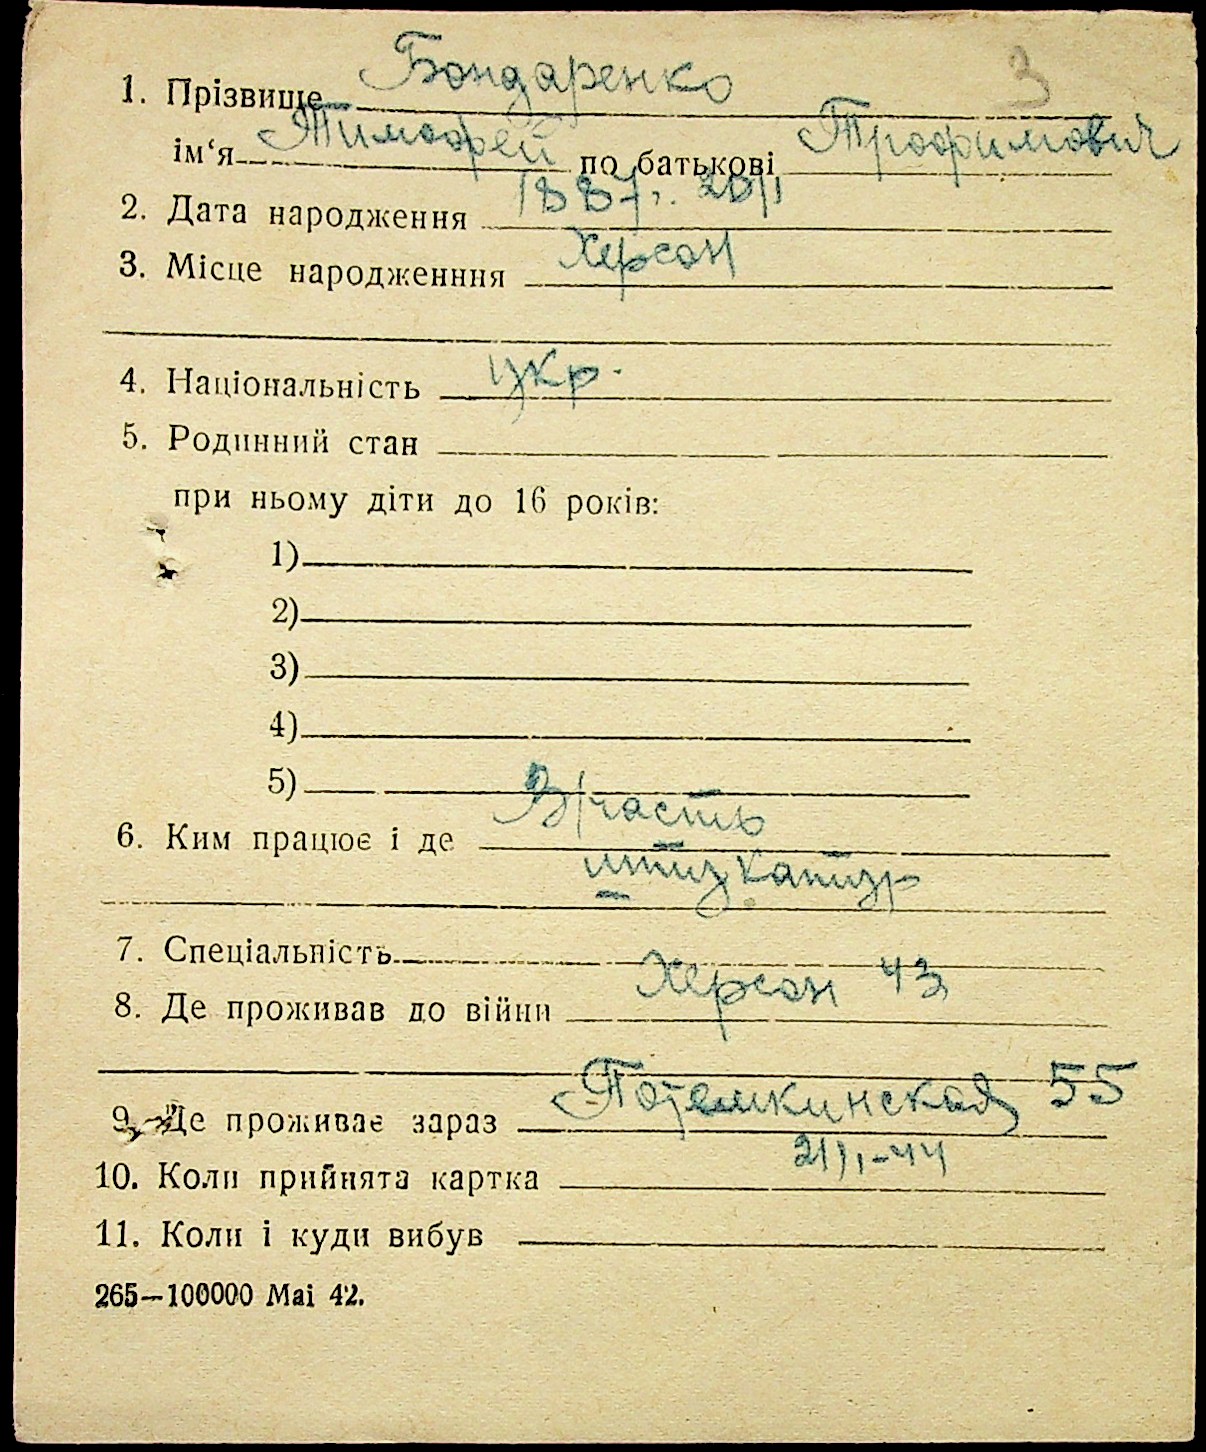 3
1. Прізвище Бондаренко
ім‘я Тимофей по батькові Трофимович
2. Дата народження 1887. 20/I
3. Місце народженння Херсон
4. Національність укр.
5. Родинний стан
при ньому діти до 16 років:
1)
2)
3)
4)
5)
6. Ким працює і де В/часть
7. Спеціальність
8. Де проживав до війни Херсон 43
9. Де проживає зараз Потемкинская 55
10. Коли прийнята картка 21/I-44
11. Коли і куди вибув
265—100000 Mai 42.